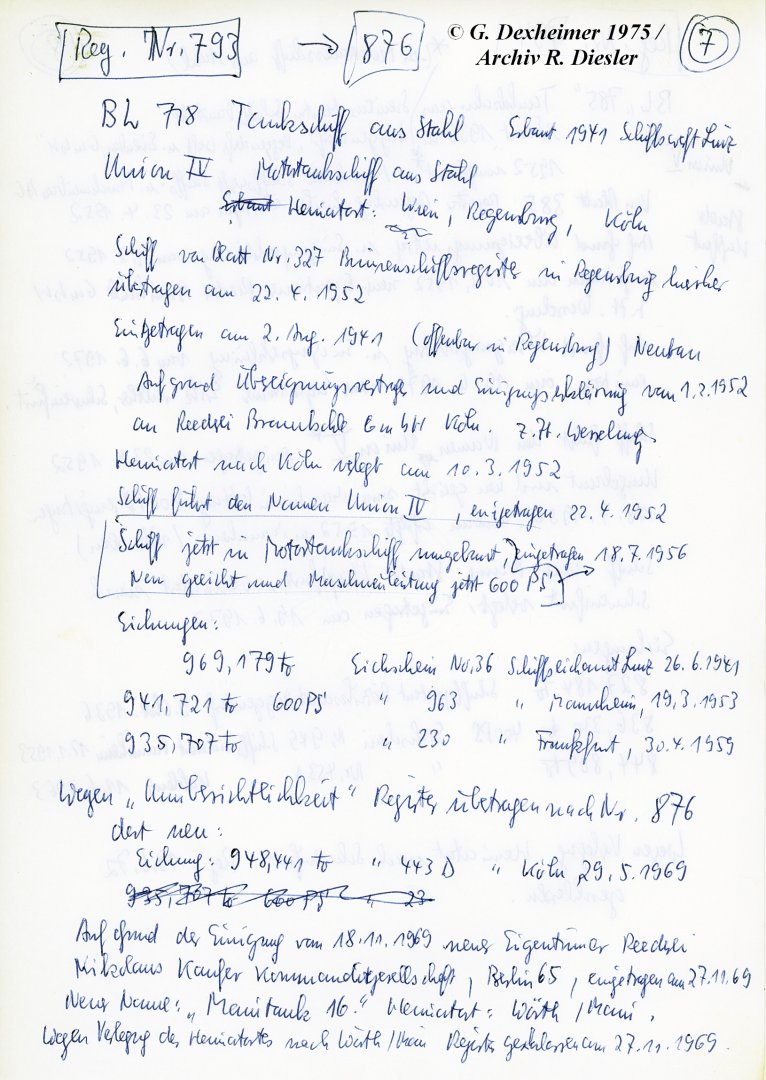 Reg. Nr. 793 → 876 © G. Dexheimer 1975 / 7
Archiv R. Diesler
BL 778 Tankschiff aus Stahl Erbaut 1941 Schiffswerft Linz
Union IV Motortankschiff aus Stahl
Erbaut Heimatort: Wien, Regensburg, Köln
Schiff von Blatt Nr. 327 Binnenschiffsregister in Regensburg hierher
übertragen am 22. 4. 1952
Eingetragen am 2. Aug. 1941 (offenbar in Regensburg) Neubau
Aufgrund Übereignungsvertrags und Einigungserklärung vom 1.2.1952
an Reederei Braunkohle GmbH Köln. z. Zt. Wesseling.
Heimatort nach Köln verlegt am 10. 3. 1952
Schiff führt den Namen Union IV, eingetragen 22. 4. 1952
Schiff jetzt in Motortankschiff umgebaut, eingetragen 18. 7. 1956
Neu geeicht und Maschinenleistung jetzt 600 PS
Eichungen:
969,179 to Eichschein No. 36 Schiffseichamt Linz 26. 6. 1941
941,721 to 600 PS " 963 " Mannheim, 19. 3. 1953
935,707 to " 230 " Frankfurt, 30. 4. 1959
Wegen „Unübersichtlichkeit" Register übertragen nach Nr. 876
dort neu:
Eichung: 948,441 to " 443 D " Köln 29. 5. 1969
935,707 to 600 PS " 23
Auf Grund der Einigung vom 18. 11. 1969 neuer Eigentümer Reederei
Nikolaus Kaufer Kommanditgesellschaft, Berlin 65, eingetragen am 27. 11. 69
Neuer Name: „Maintank 16." Heimatort: Wörth / Main.
Wegen Verlegung des Heimatortes nach Wörth / Main Register geschlossen am 27. 11. 1969.